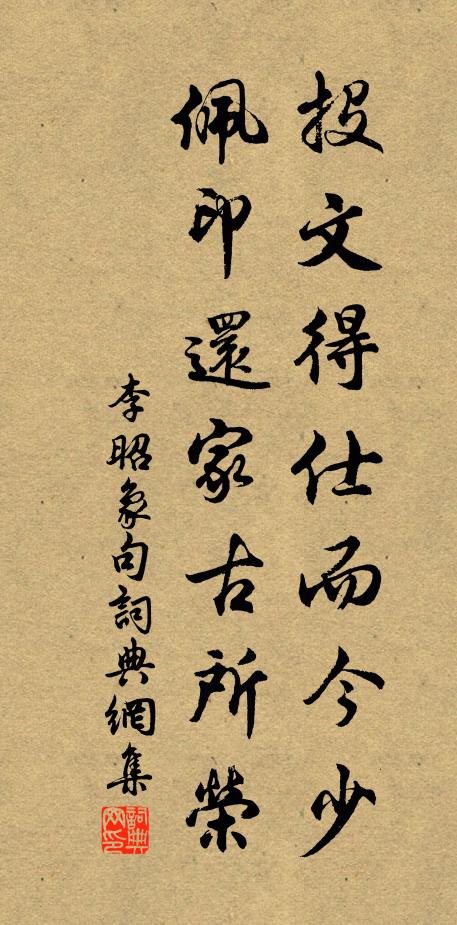 投文得仕而今少
佩印還家古所榮
李昭象句詞典網集
詞典網印